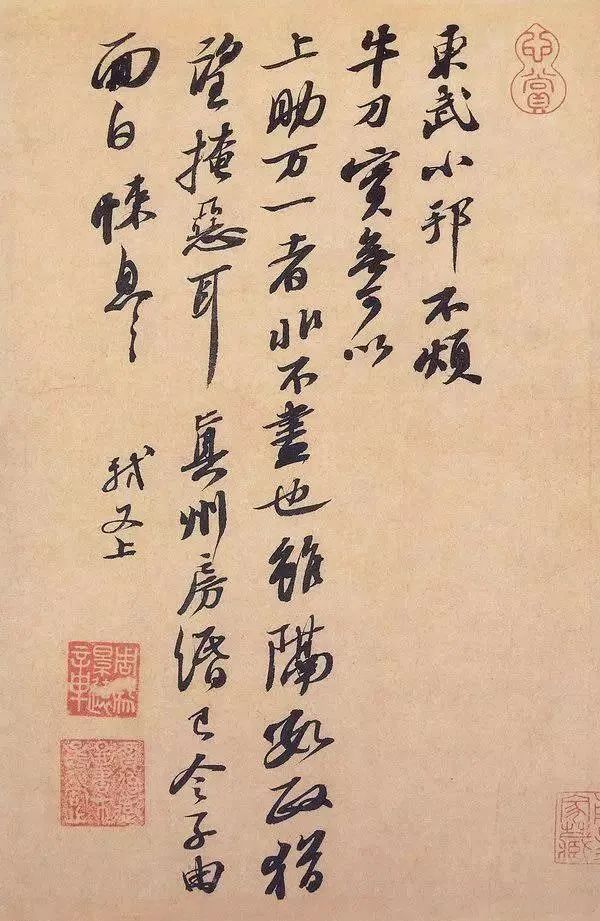 東武小邦不煩
牛刀實無可以
上助万一者非不盡也雖隔數政猶
望掩惡耳 真州房緡已令子由
面白悚息〻
軾又上
心賞